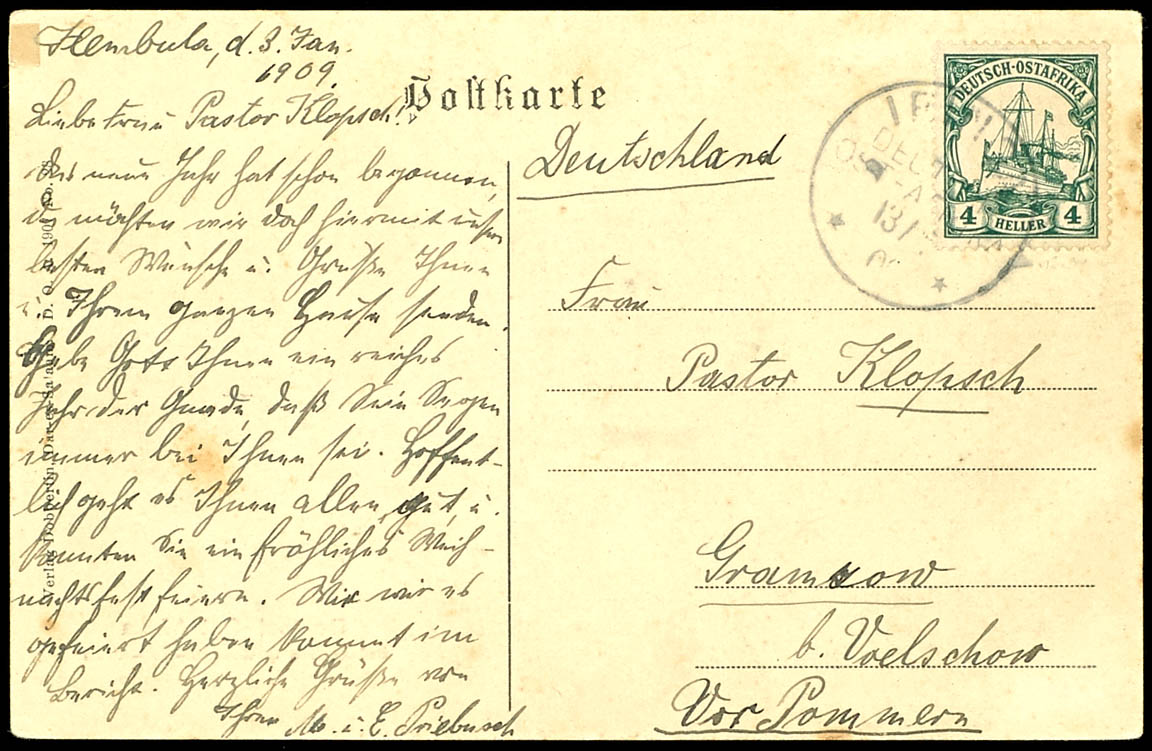 Ilembula, d. 3. Jan.
1909.
Liebe Frau Pastor Klopsch!
Das neue Jahr hat schon begonnen,
u. möchten wir doch hiermit unsere
besten Wünsche u. Grüße Ihnen
u. Ihrem ganzen Hause senden.
Gebe Gott Ihnen ein reiches
Jahr der Gnade, daß Sein Segen
immer bei Ihnen sei. Hoffent-
lich geht es Ihnen allen gut, u.
konnten Sie ein fröhliches Weih-
nachtsfest feiern. Wie wir es
gefeiert haben kommt im
Bericht. Herzliche Grüße von
Ihren M. u. E. Priebusch
Postkarte
Deutschland
DEUTSCH-OSTAFRIKA
4 HELLER 4
13/
Frau
Pastor Klopsch
Gramzow
b. Voelschow
Vor Pommern
Verlag Dobbertin, Dar-es-Salaam